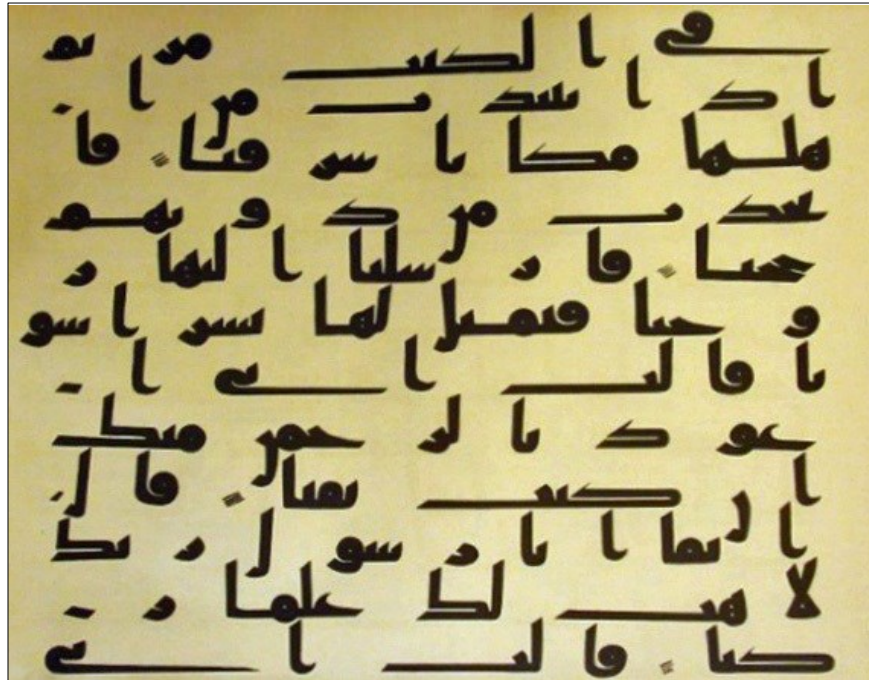 في الكتب مريم
اذ انتبذت من ا
هلها مكانا شرقيا فا
تخذت من دونهم
حجابا فارسلنا اليها ر
وحنا فتمثل لها بشرا سو
يا قالت اني ا
عوذ بالرحمن منك
ان كنت تقيا قال
انما انا رسول ربك
لاهب لك غلما ز
كيا قالت انى